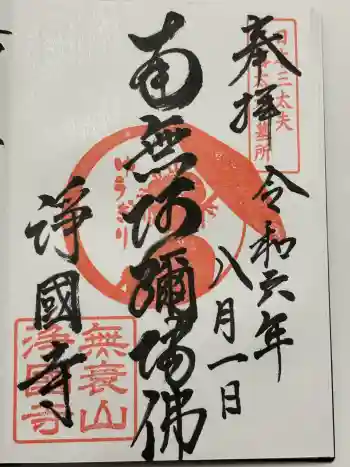 奉拝
令和六年
八月一日
南無阿彌陀佛
淨國寺
無衰山
淨国寺
三太夫
墓所